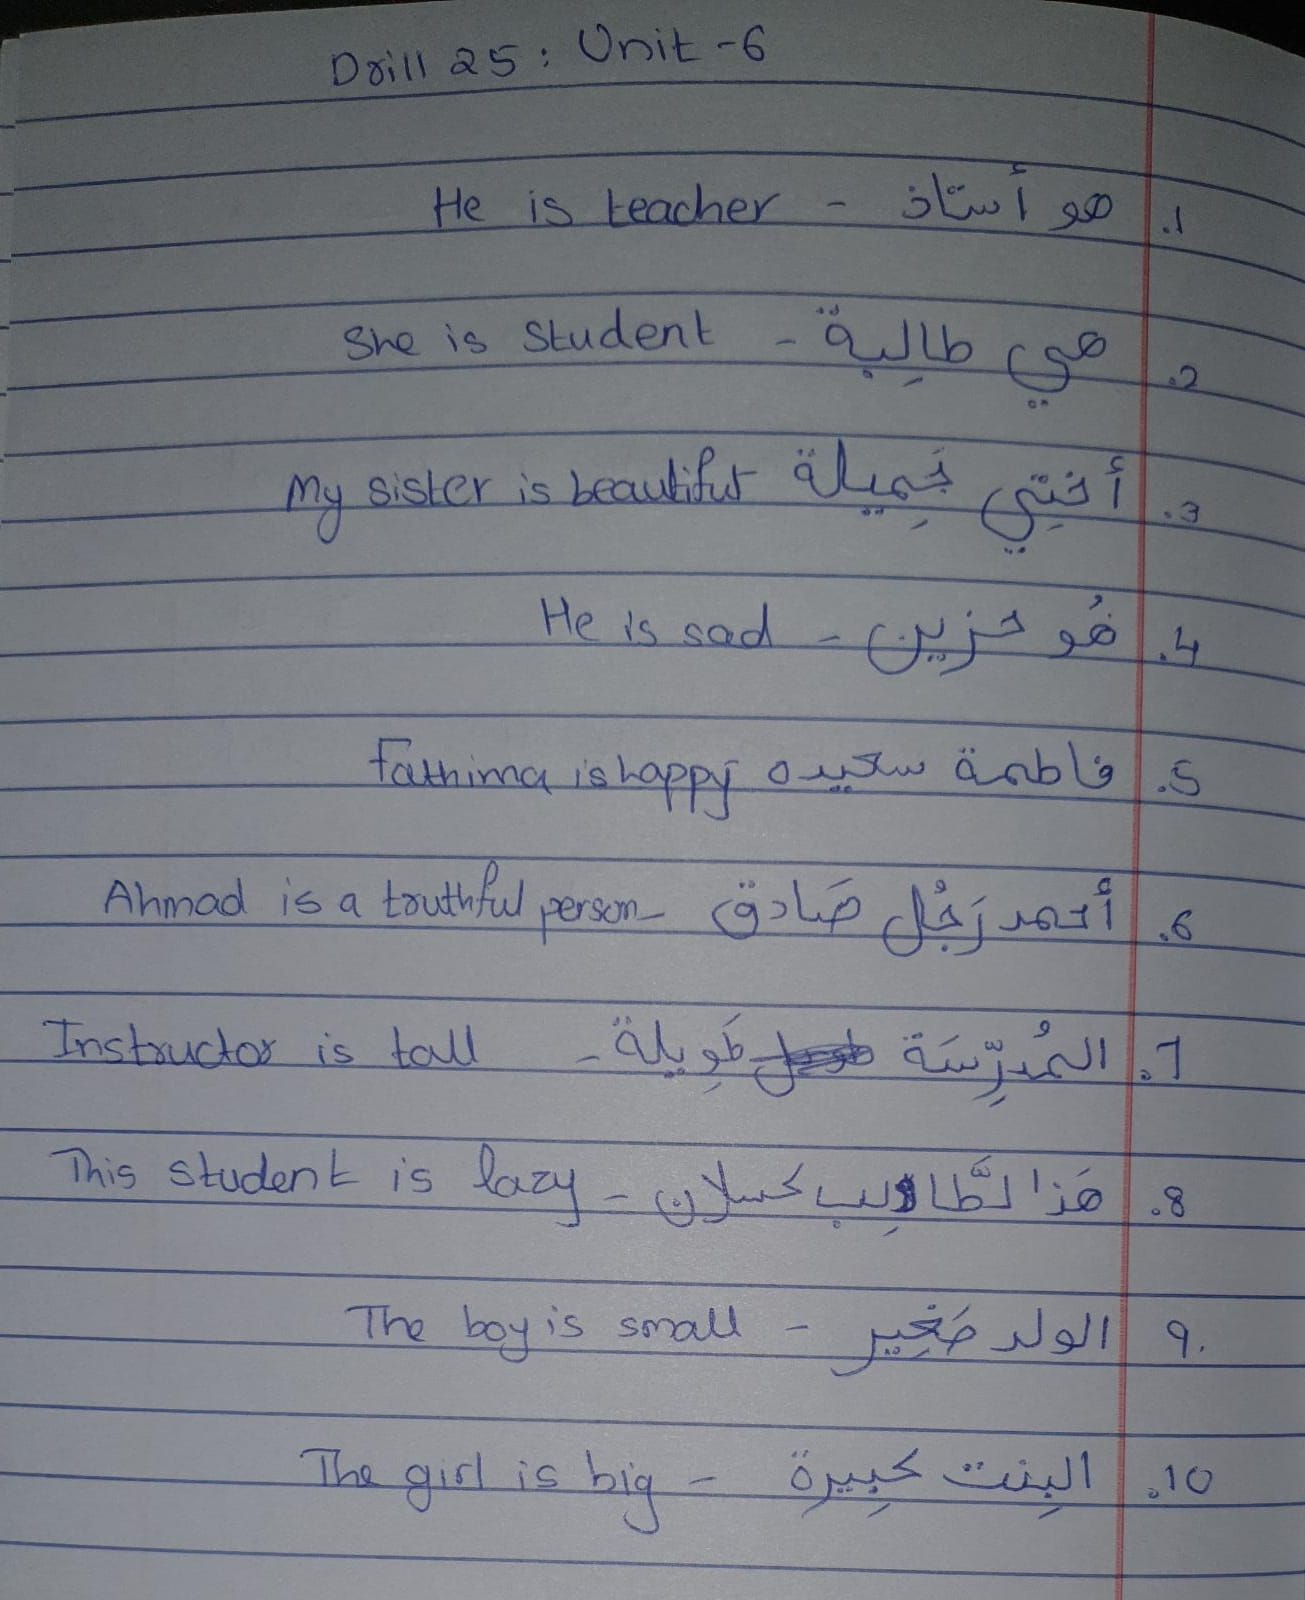 Drill 25: Unit -6
1. هو أستاذ - He is teacher
2. هي طالِبة - She is student
3. أختِي جَمِيلة My sister is beautiful
4. هُو حزين - He is sad
5. فاطمة سعيده Fathima is happy
6. أحمد رَجُل صَادق - Ahmad is a truthful person
7. المُدرِّسَة طَوِيلة - Instructor is tall
8. هَذا لطَّالِب كسلان - This student is lazy
9. الولد صَغِير - The boy is small
10. البِنت كبِيرة - The girl is big